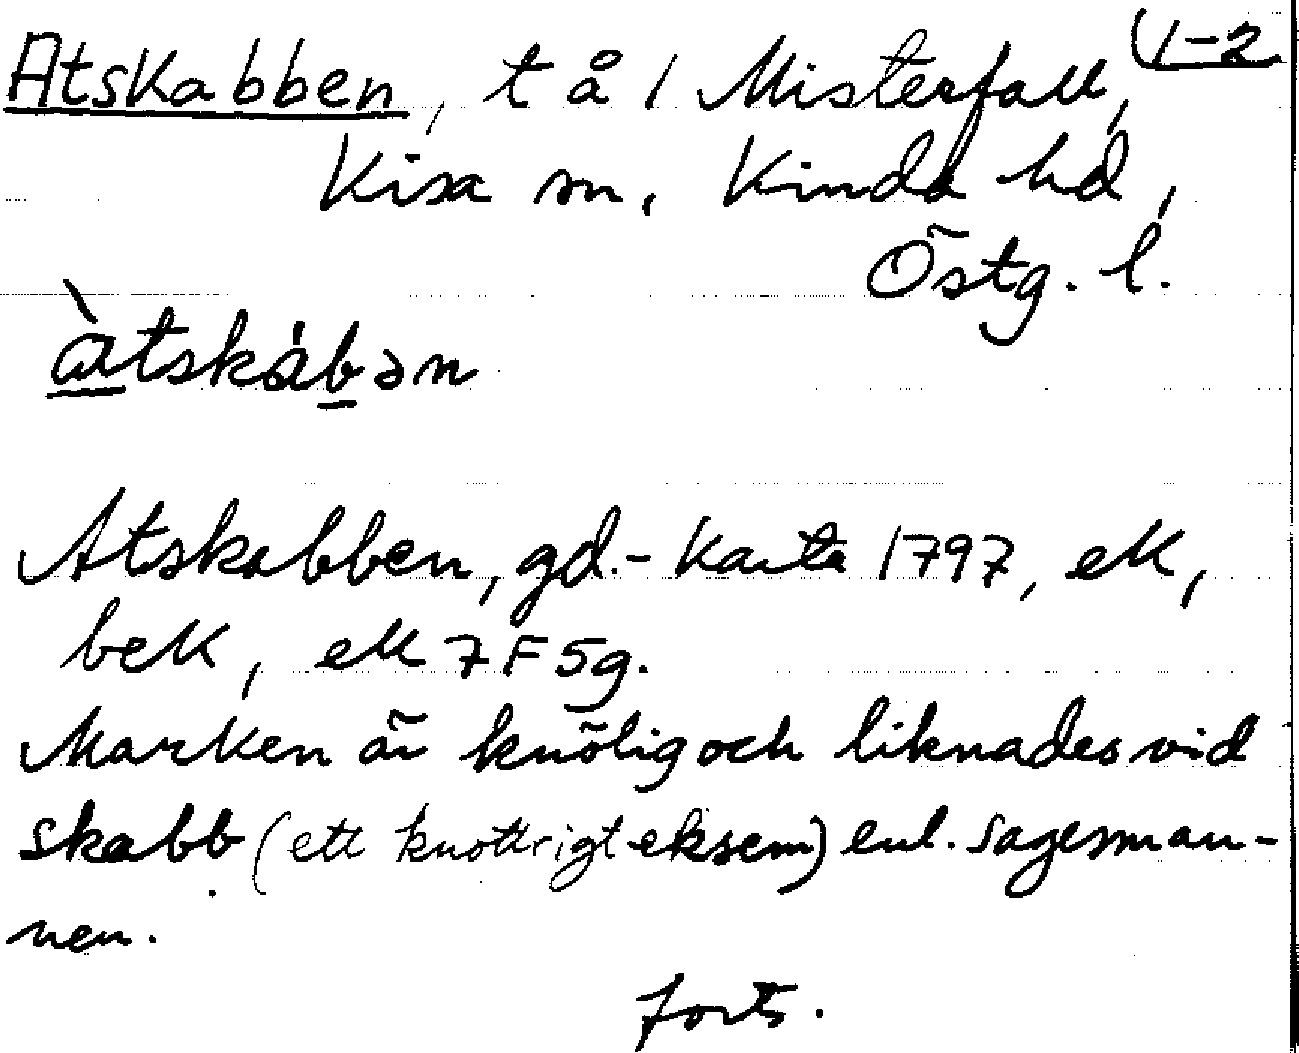 Atskabben, t å 1 Misterfall, (1-2
Kisa sn, Kinda hd,
Östg. l.
àtskábən
Atskabben, gd.- Karta 1797, ek,
bek, ek 7F5g.
Marken är knölig och liknades vid
skabb (ett knottrigt eksem) enl. sagesman-
nen.
forts.